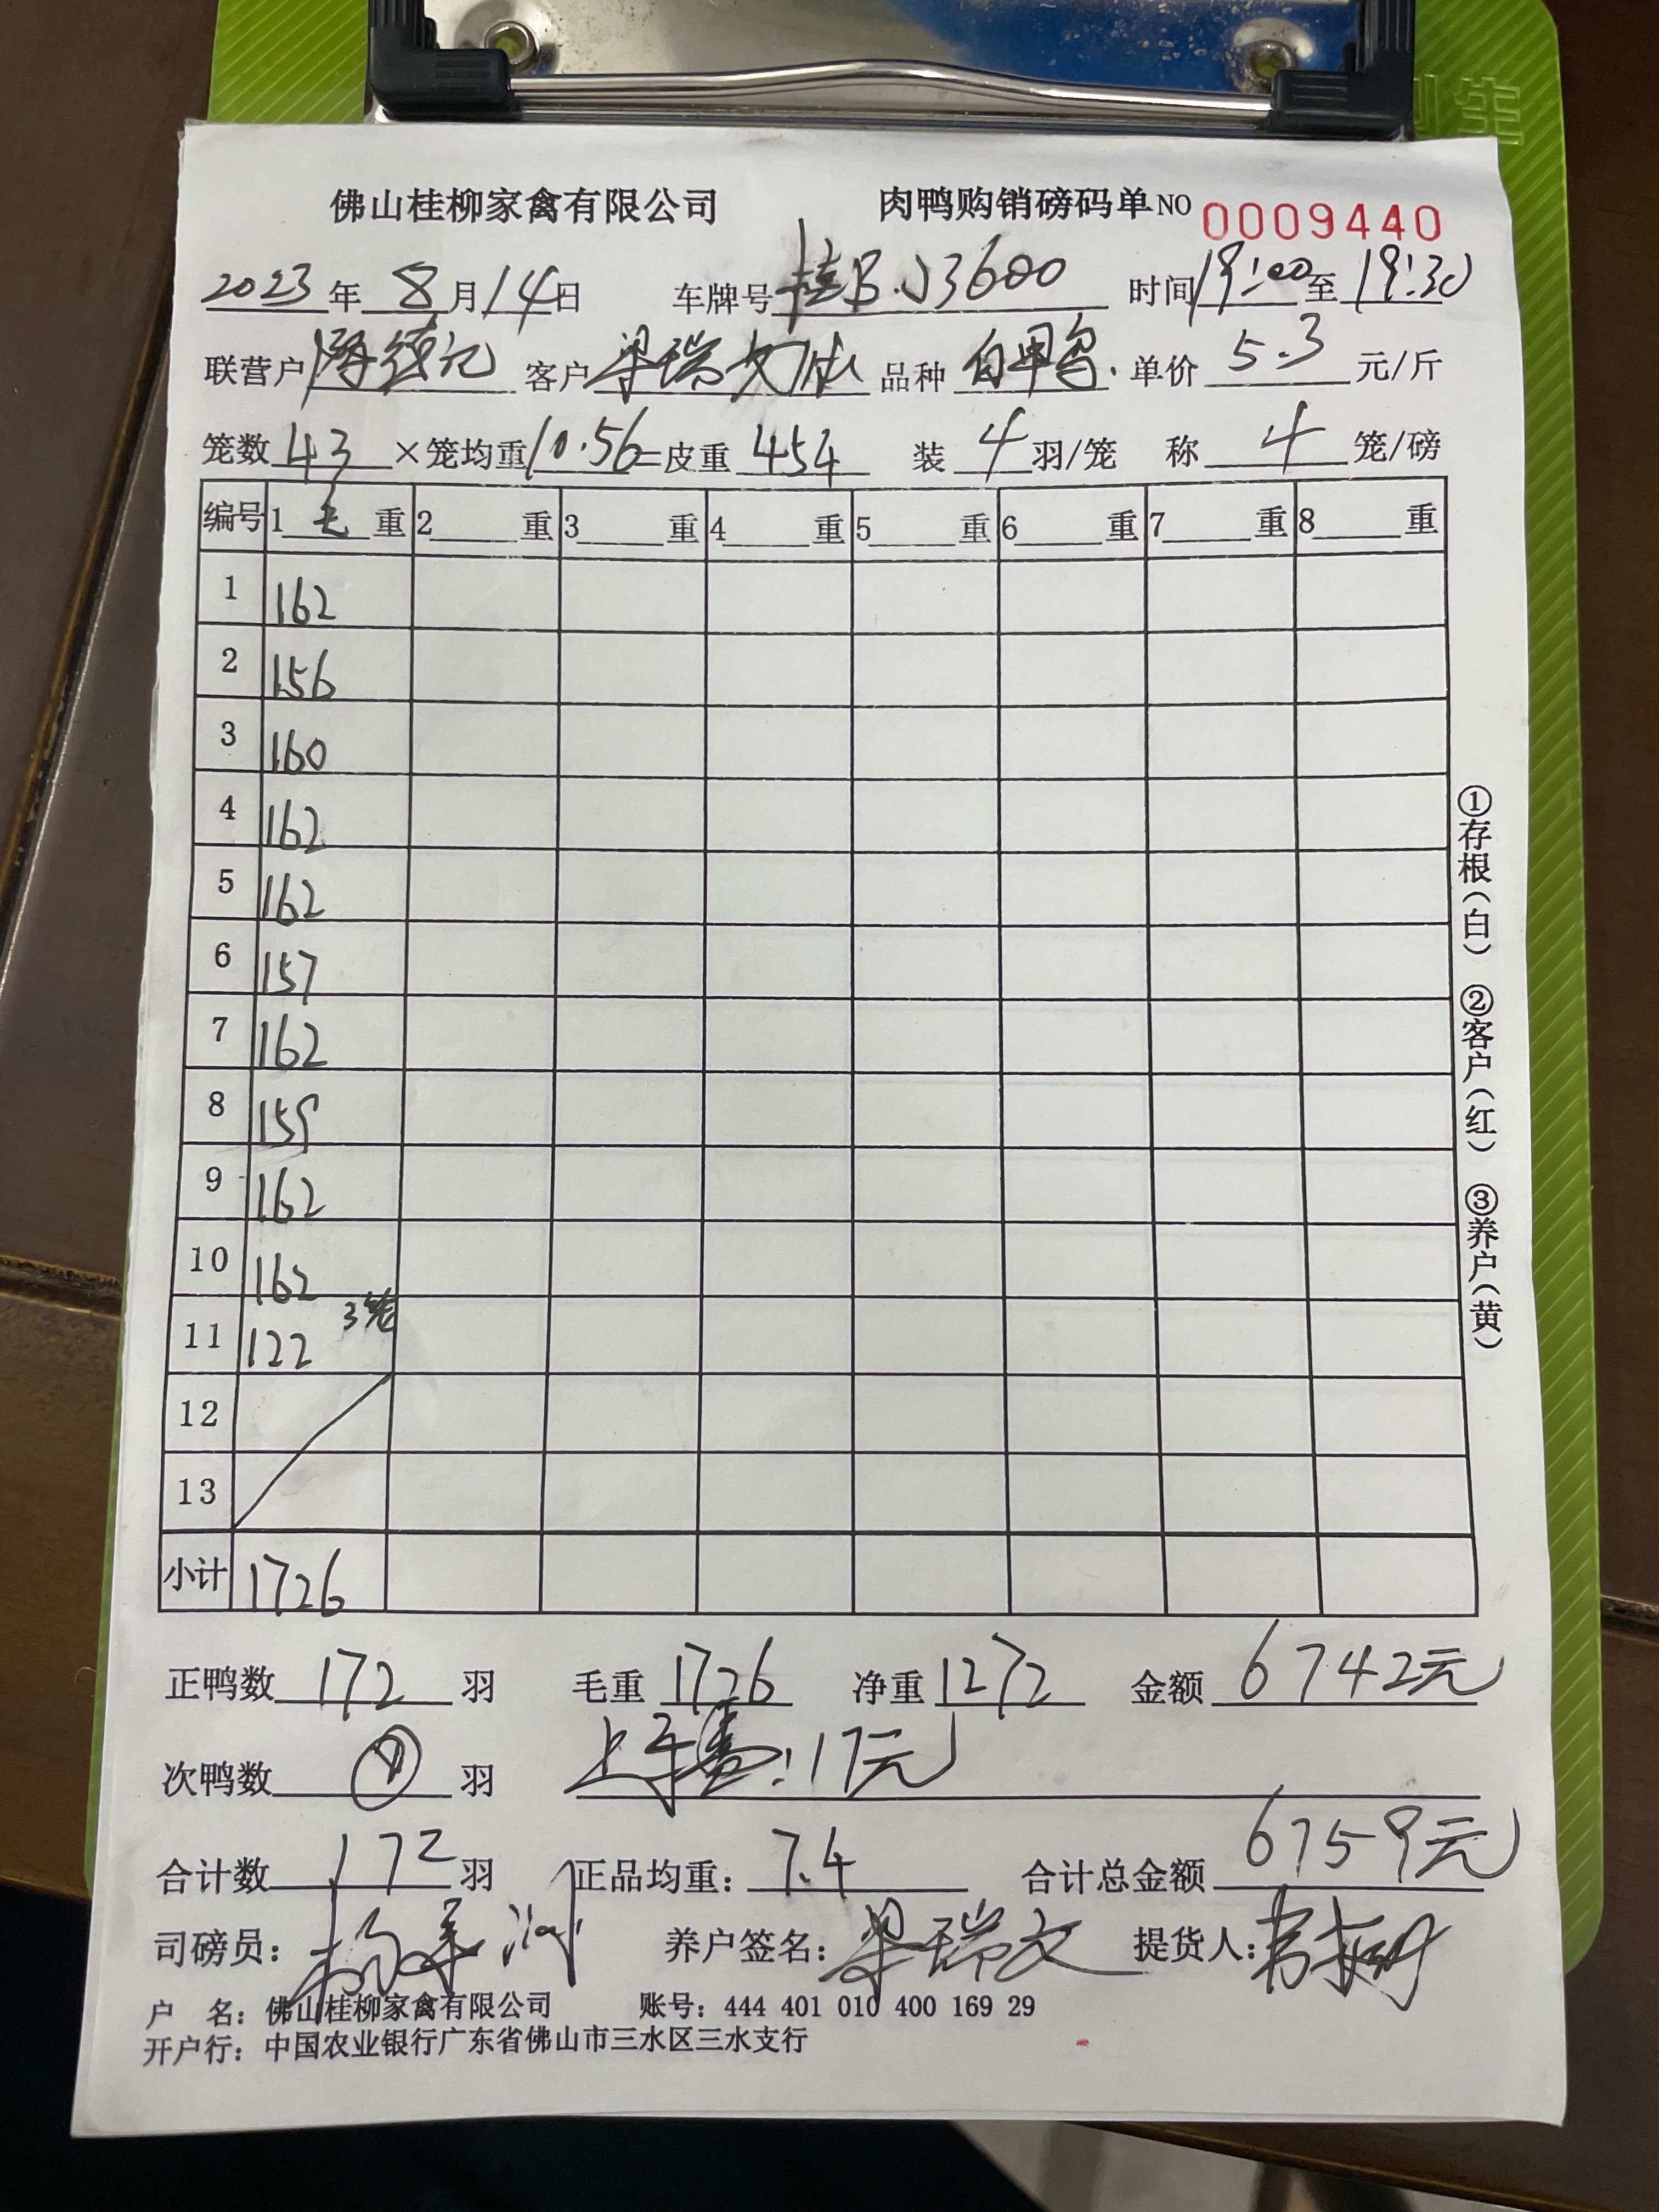 佛山桂柳家禽有限公司 肉鸭购销磅码单NO 0009440
2023年8月14日 车牌号桂B.J3600 时间19:00至19:30
联营户 客户梁瑞文 品种 单价5.3元/斤
笼数43×笼均重10.56=皮重454 装4羽/笼 称4笼/磅
编号 1毛重 2重 3重 4重 5重 6重 7重 8重
1 162
2 156
3 160
4 162
5 162
6 157
7 162
8 159
9 162
10 162
11 122 3笼
12
13
小计 1726
正鸭数172羽 毛重1726 净重1272 金额6742元
次鸭数 羽 上车费:17元
合计数172羽 正品均重:7.4 合计总金额6759元
司磅员: 养户签名:梁瑞文 提货人:
户 名:佛山桂柳家禽有限公司 账号:444 401 010 400 169 29
开户行:中国农业银行广东省佛山市三水区三水支行
①存根(白) ②客户(红) ③养户(黄)